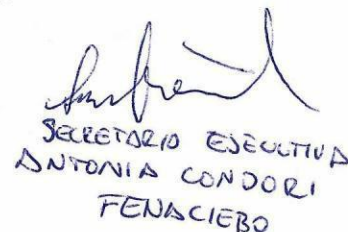 SECRETARIO EJECUTIVA
ANTONIA CONDORI
FENACIEBO